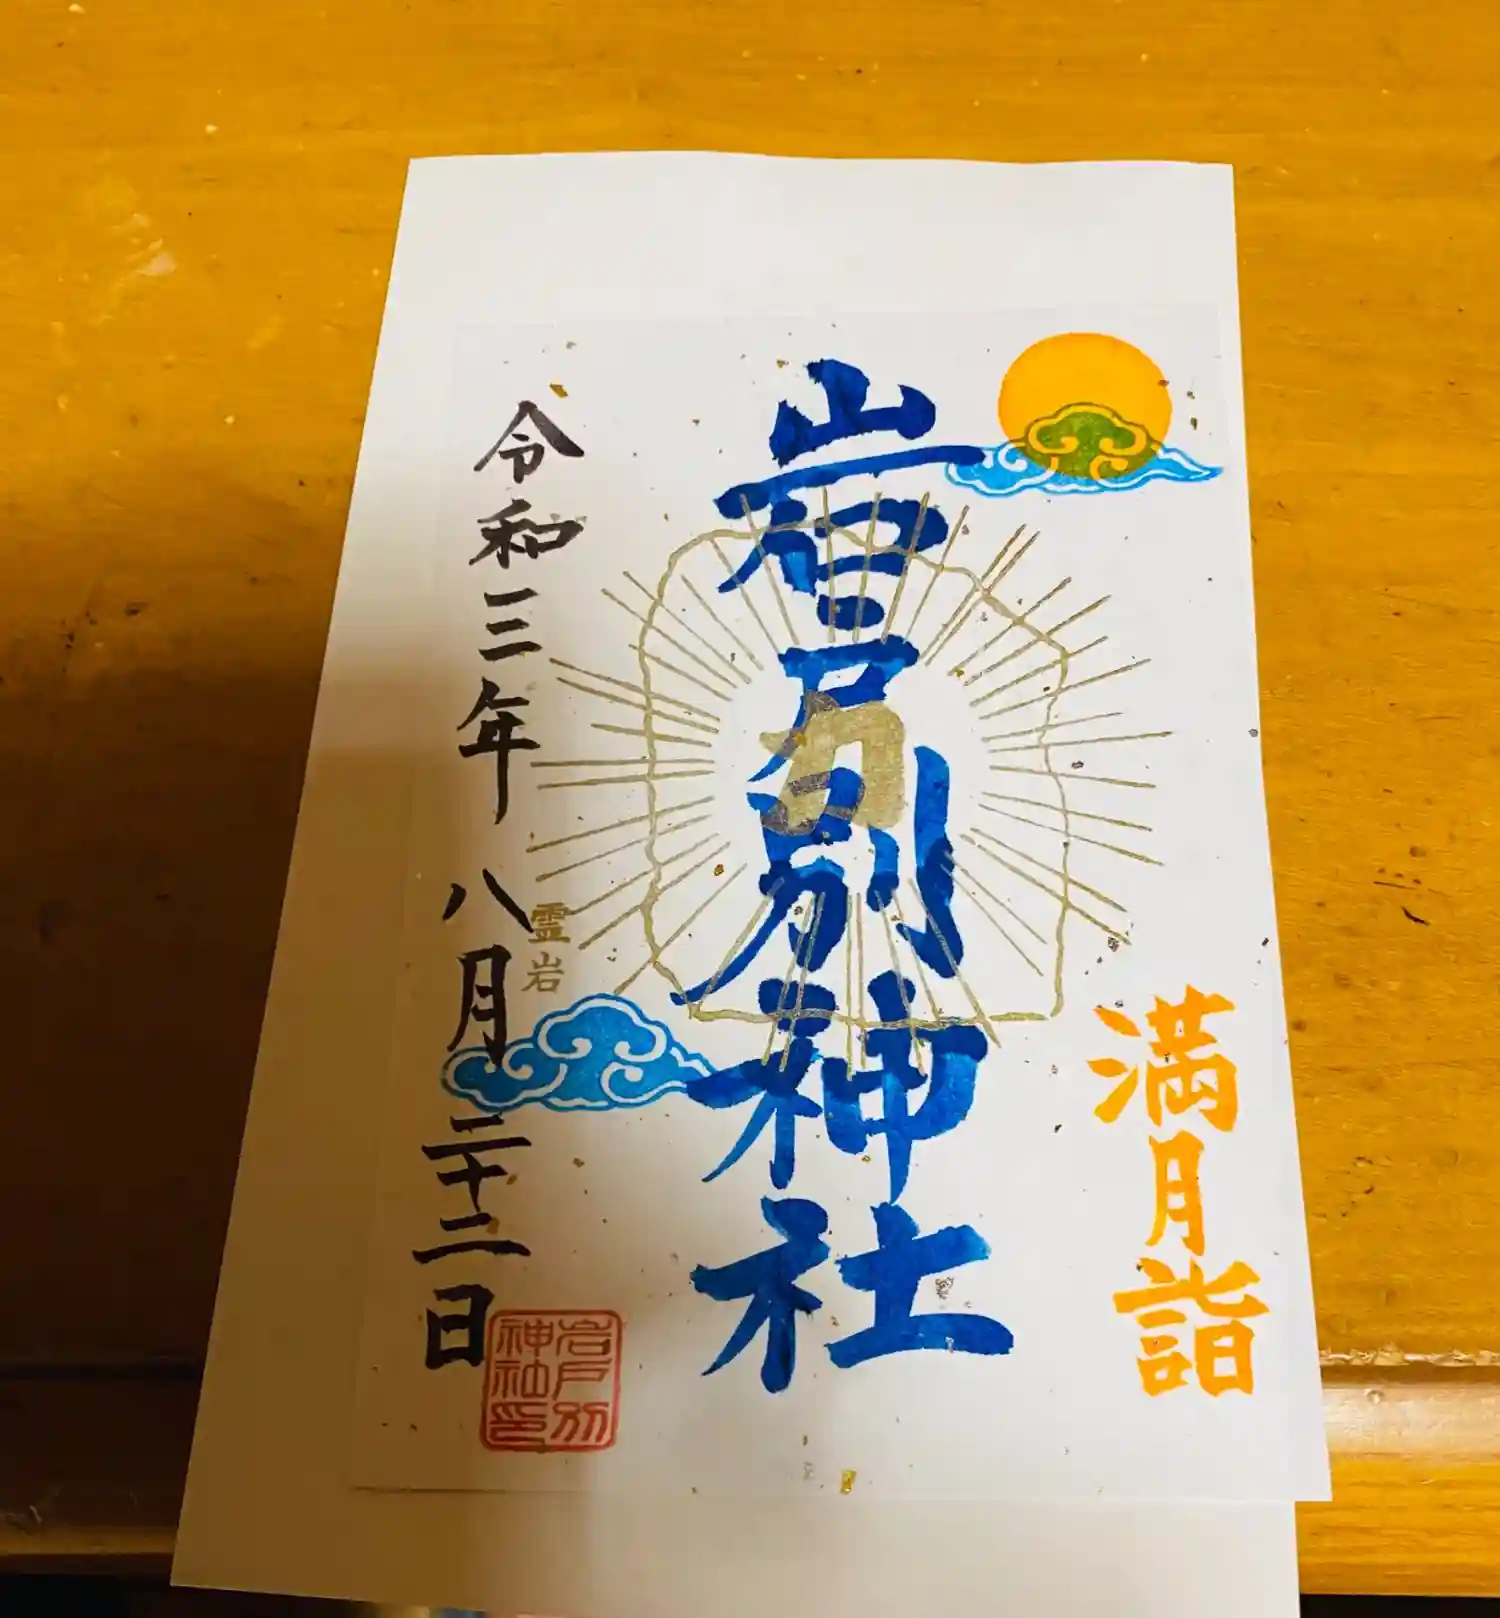 満月詣
岩戸別神社
力
霊岩
令和三年八月二十二日
岩戸別
神社印